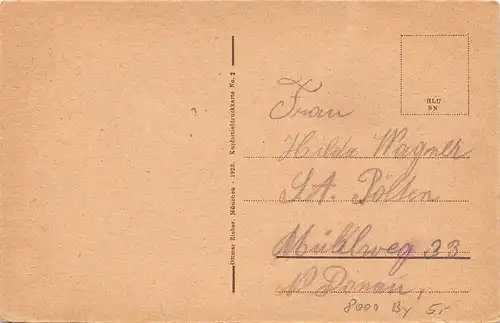 Ottmar Zieher, München - 1923. Kupfertiefdruckkarte No. 2
HLU
NN
Frau
Hilda Wagner
St. Pölten
Mühlweg 33
N Donau,
8000 By 5,-